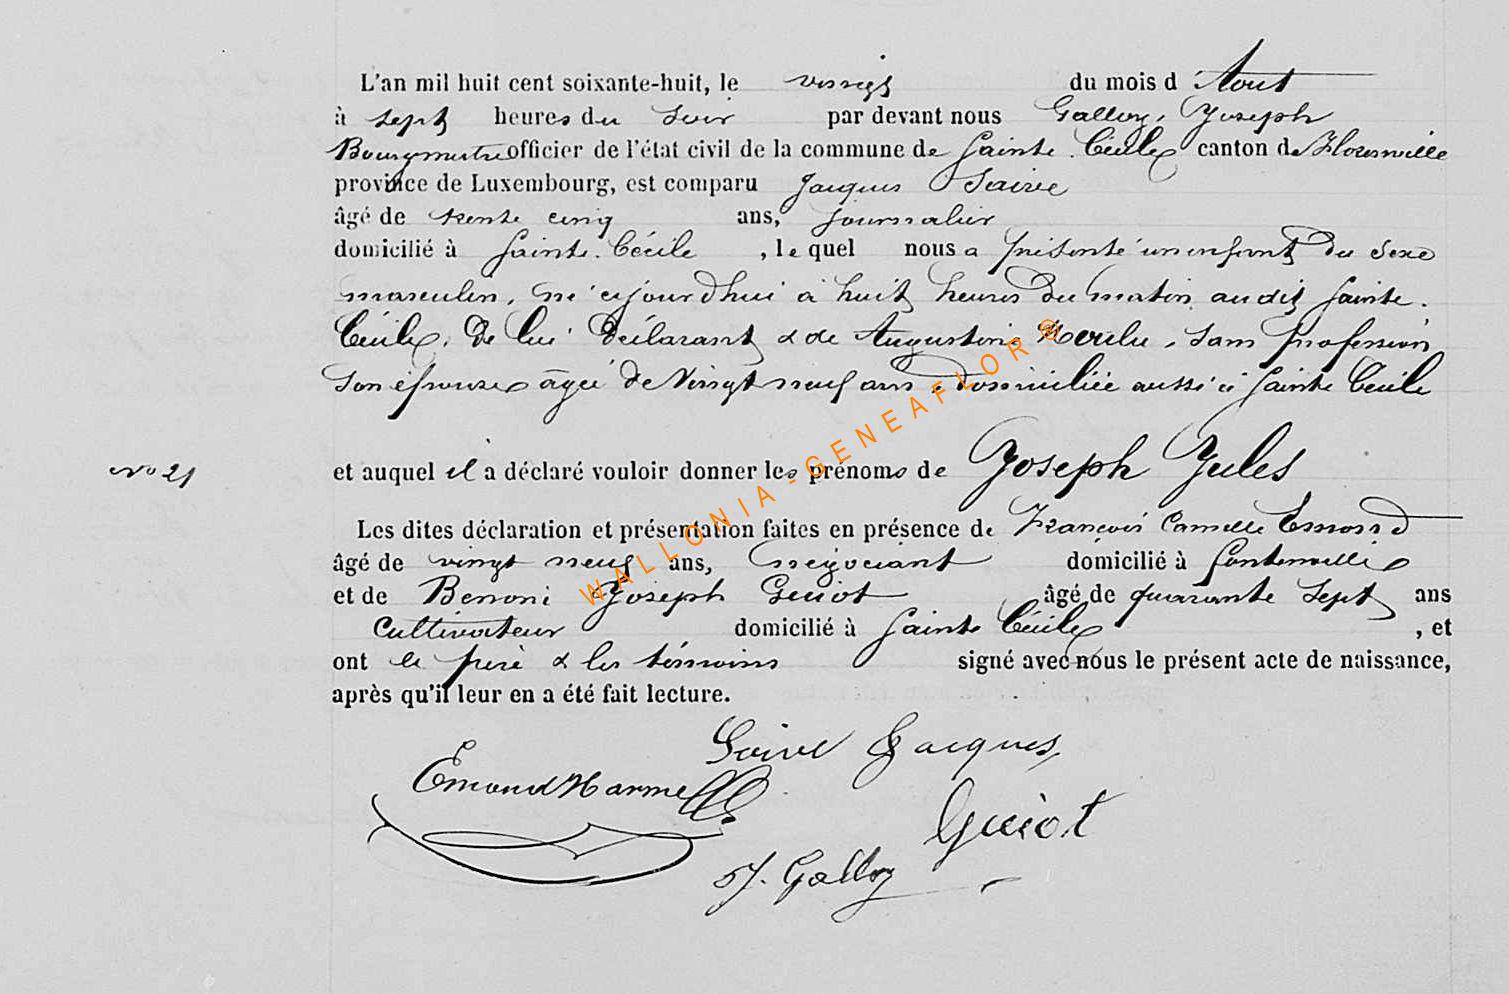 L'an mil huit cent soixante-huit, le vingt du mois d'Aout
à sept heures du soir par devant nous Galloy, Joseph
Bourgmestre officier de l'état civil de la commune de Sainte. Cécile canton de Florenville
province de Luxembourg, est comparu Jacques Saive
âgé de trente cinq ans, journalier
domicilié à Sainte. Cécile , le quel nous a présenté un enfant du sexe
masculin, né aujourd'hui à huit heures du matin audit Sainte.
Cécile, de lui déclarant & de Augustine, sans profession
son épouse âgée de vingt neuf ans, domiciliée aussi à Sainte Cécile
No 21
et auquel il a déclaré vouloir donner les prénoms de Joseph Jules
Les dites déclaration et présentation faites en présence de François Camille Emond
âgé de vingt neuf ans, négociant domicilié à Fontenoille
et de Benoni Joseph Guiot âgé de quarante sept ans
Cultivateur domicilié à Sainte Cécile , et
ont le père & les témoins signé avec nous le présent acte de naissance,
après qu'il leur en a été fait lecture.
Saive Jacques
Emond Harmel
Guiot
J. Galloy
WALLONIA - GENEAFLOR®